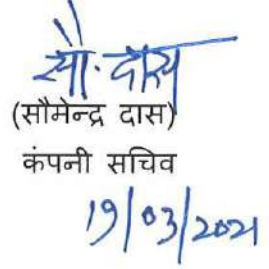 सौ. दास
(सौमेन्द्र दास)
कंपनी सचिव
19/03/2021